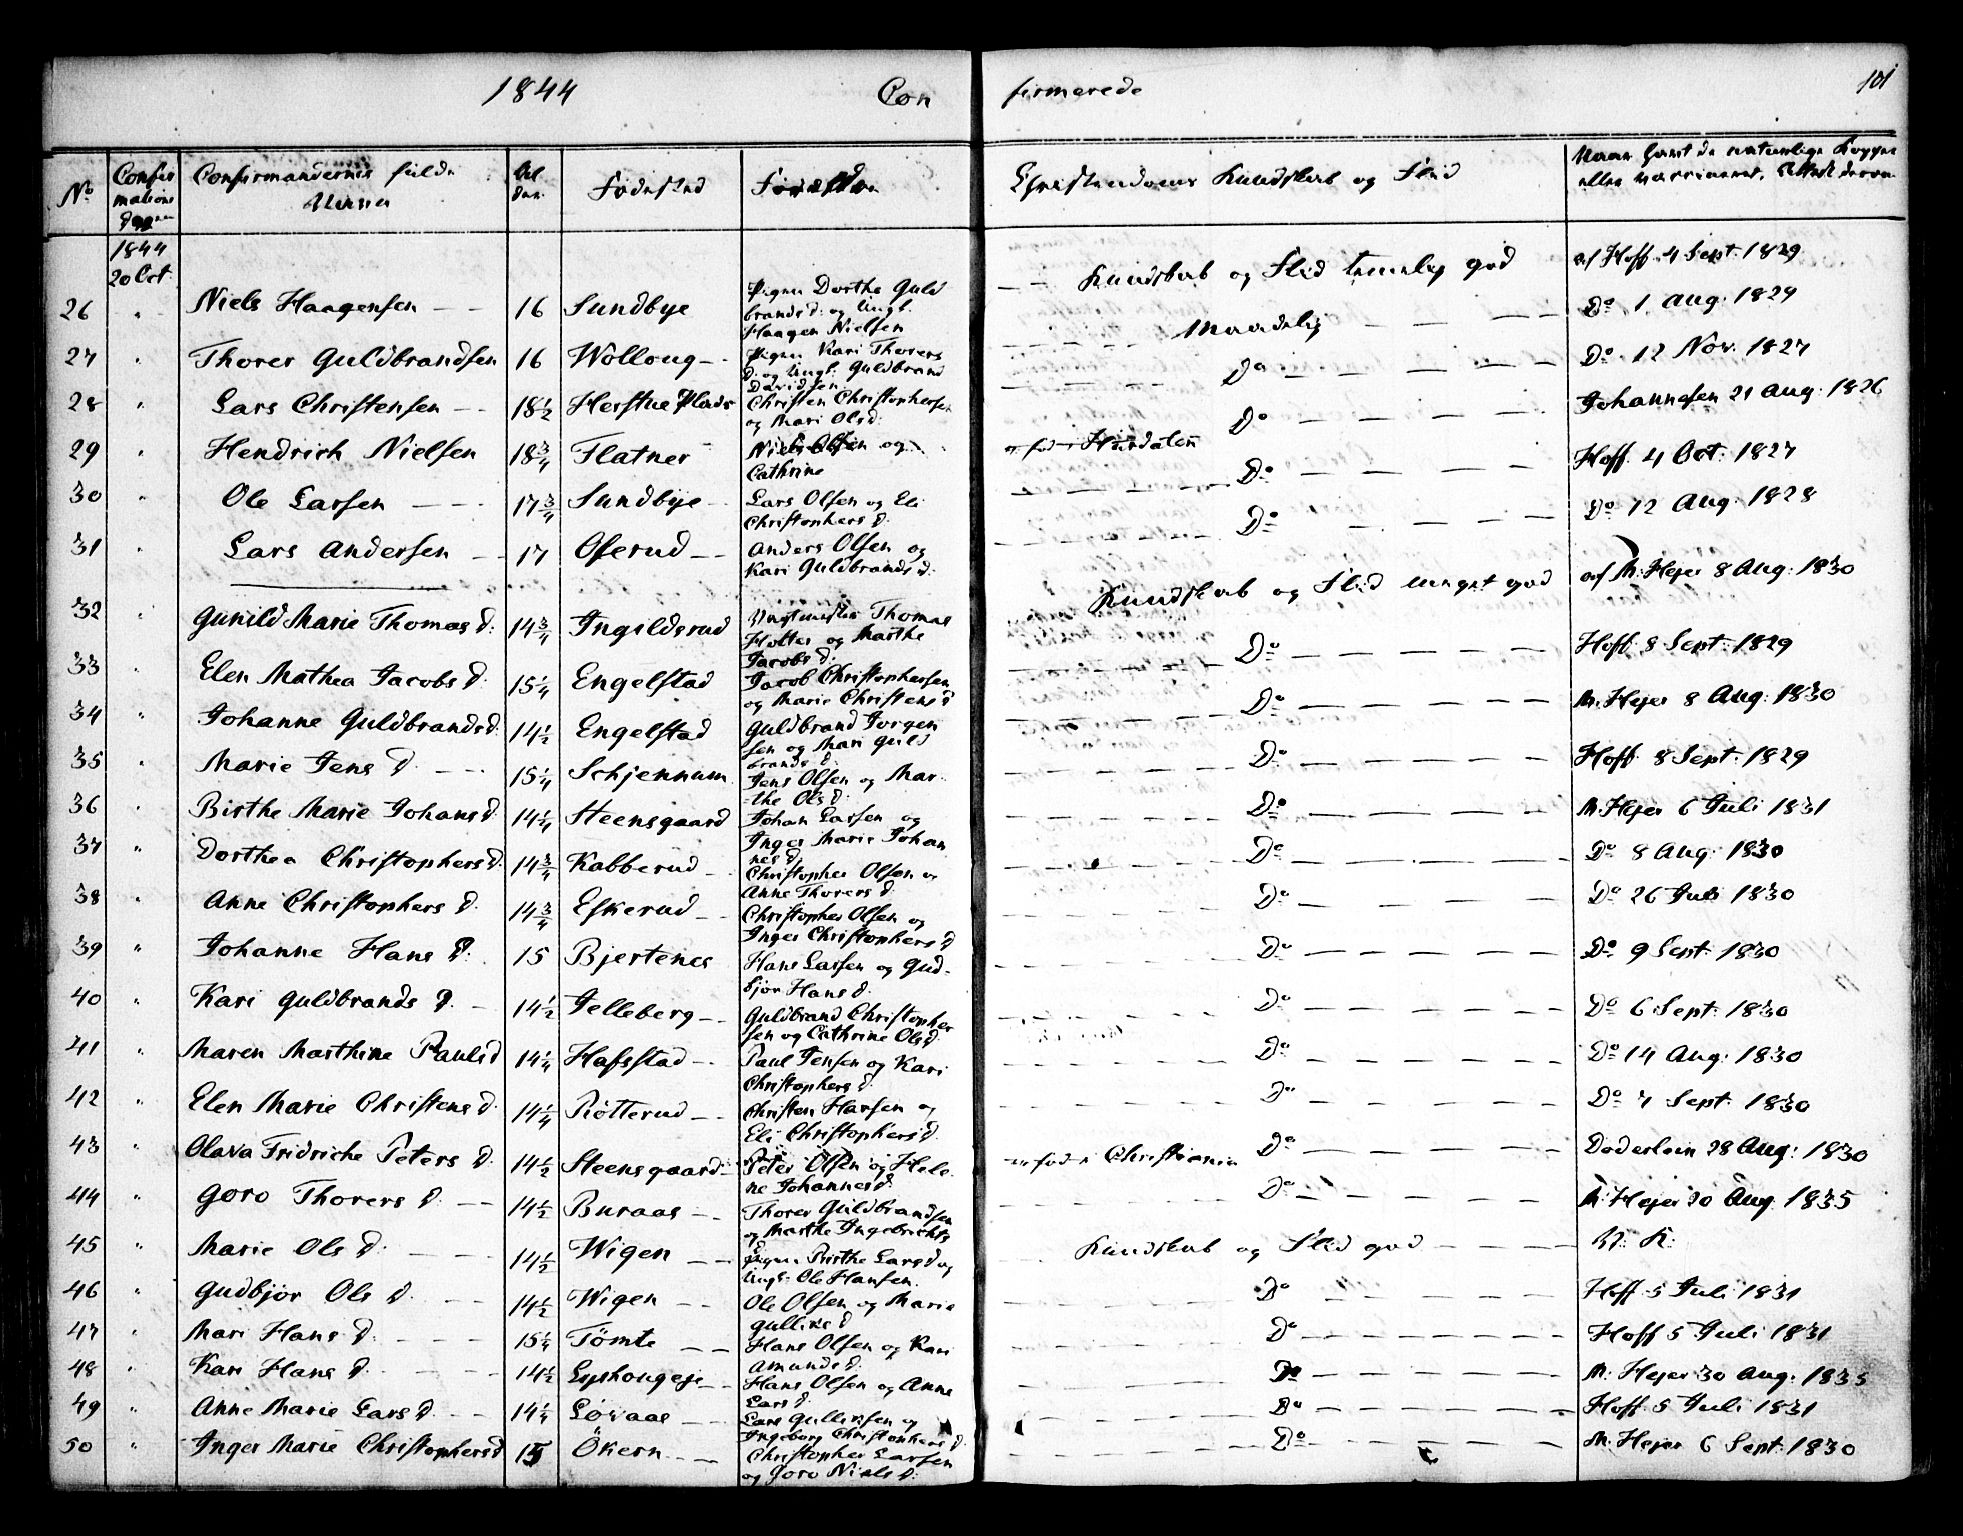 1844 Con firmerede 101
No Confirmations Dagen Confirmandernes fulde Navne Alderen Fødested Forældre Christendoms Kundskab og Flid Naar havt de naturlige Kopper eller vaccineret, Attest derom
1844
20 Oct.
26 " Niels Haagensen 16 Sundbye Pigen Dorthe Guld
brands d: og Ungk:
Haagen Nielsen
Kundskab og Flid temelig god af Hoff 4 Sept: 1829
27 " Thorer Guldbrandsen 16 Wolloug Pigen Kari Thorers
d: og Ungk: Guldbrand
Davidsen
Maadelig Do 1 Aug: 1829
28 " Lars Christensen 18½ Herstue Plads Christen Christophersen
og Mari Olsd:
Do Do 12 Nov: 1827
29 " Hendrich Nielsen 18¾ Flatner Niels Olsen og
Cathrine
fød i Hurdalen Do Johannesen 21 Aug: 1826
30 " Ole Larsen 17¾ Sundbye Lars Olsen og Eli
Christophers d:
Do Hoff 4 Oct: 1827
31 " Lars Andersen 17 Oserud Anders Olsen og
Kari Guldbrands d:
Do Do 12 Aug: 1828
32 " Gunild Marie Thomas d: 14¾ Ingeldsrud Thomas
Holter og Marthe
Jacobs d:
Kundskab og Flid meget god af M: Hejer 8 Aug: 1830
33 " Elen Mathea Jacobs d: 15¼ Engelstad Jacob Christophersen
og Marie Christens d
Do Hoff 8 Sept: 1829
34 " Johanne Guldbrands d: 14½ Engelstad Guldbrand Jørgen
sen og Mari Guld
brands d:
Do M: Hejer 8 Aug: 1830
35 " Marie Jens d 15¼ Schjennum Jens Olsen og Mar
the Ols d:
Do Hoff 8 Sept: 1829
36 " Birthe Marie Johans d 14¼ Steensgaard Johan Larsen og
Inger Marie Johan
nes d
Do M: Hejer 6 Juli 1831
37 " Dorthea Christophers d. 14¾ Kabberud Christopher Olsen og
Anne Thorers d:
Do Do 8 Aug: 1830
38 " Anne Christophers d. 14¾ Eskerud Christopher Olsen og
Inger Christophers d
Do Do 26 Juli 1830
39 " Johanne Hans d: 15 Bjertenes Hans Larsen og Gud-
bjør Hans d:
Do Do 9 Sept: 1830
40 " Kari Guldbrands d. 14½ Jelleberg Guldbrand Christopher
sen og Cathrine Olsd:
Do Do 6 Sept: 1830
41 " Maren Marthine Pauls d 14¼ Hafsstad Paul Jensen og Kari
Christophers d:
Do Do 14 Aug: 1830
42 " Elen Marie Christens d. 14¼ Røtterud Christen Hansen og
Eli Christophers d.
Do Do 7 Sept: 1830
43 " Olava Fridriche Peters d. 14½ Steensgaard Peter Olsen og Hele
ne Johannes d:
fød i Christiania Do Døderlein 28 Aug: 1830
44 " Goro Thorers d. 14½ Buraas Thorer Guldbrandsen
og Marthe Ingebrichts
d
Do M: Hejer 20 Aug: 1835
45 " Marie Ols d: 14½ Wigen Pigen Birthe Larsd og
Ungk: Ole Hansen.
Kundskab og Flid god N: K:
46 " Gudbjør Ols d. 14½ Wigen Ole Olsen og Marie
Gulliks d
Do Hoff 5 Juli 1831
47 " Mari Hans d: 15¼ Tømte Hans Olsen og Kari
Amunds d:
Do Hoff 5 Juli 1831
48 " Kari Hans d. 14½ Lyshougeje Hans Olsen og Anne
Lars d:
Do M: Hejer 30 Aug: 1835
49 " Anne Marie Lars d. 14¼ Løvaas Lars Gulliksen og
Ingeborg Christophers d:
Do Hoff 5 Juli 1831
50 " Inger Marie Christophers d 15 Økern Christopher Larsen
og Goro Niels d:
Do M: Hejer 6 Sept: 1830